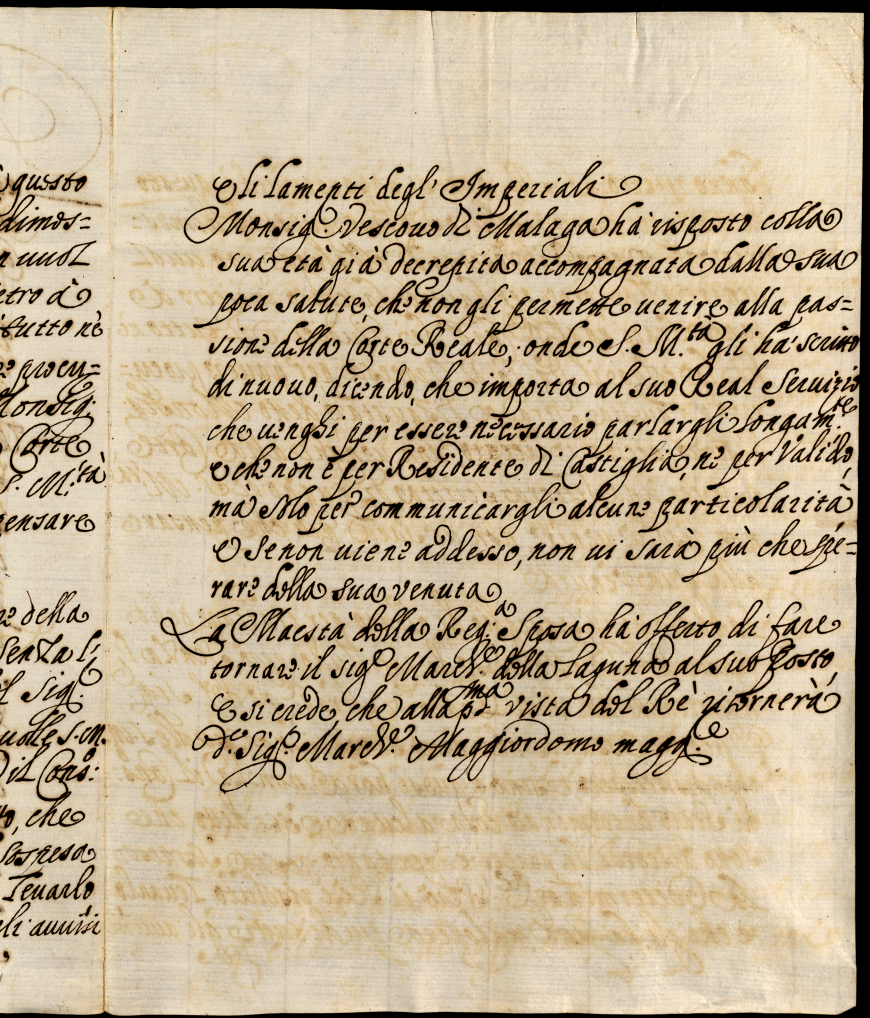 questo
dimos=
n vuol
etro à
tutto nè
procu=
Monsig.
Corte
S. M.tà
pensare
re della
senza li
l Sig.
uolle S. M.
il Cons:
to, che
sospesa
leuarlo
eli auuisi
e li lamenti degl' Imperiali
Monsig.e Vescouo di Malaga hà risposto colla
sua età già decrepita accompagnata dalla sua
poca salute, che non gli permette uenire alla pas=
sione della Corte Reale, onde S. M.tà gli hà scritto
di nuouo, dicendo, che importa al suo Real Seruizio
che uenghi per essere necessario parlargli longam.te
e che non è per Residente di Castiglia, ne per Valido,
mà solo per communicargli alcune particolarità
e se non uiene addesso, non ui sarà più che spe=
rare della sua venuta
La Maestà della Reg.a Sposa hà offerto di fare
tornare il sig.e March.e della Laguna al suo Posto,
e si crede, che alla p.ma vista del Rè ritornerà
d.o Sig.e March.e Maggiordomo magg.e